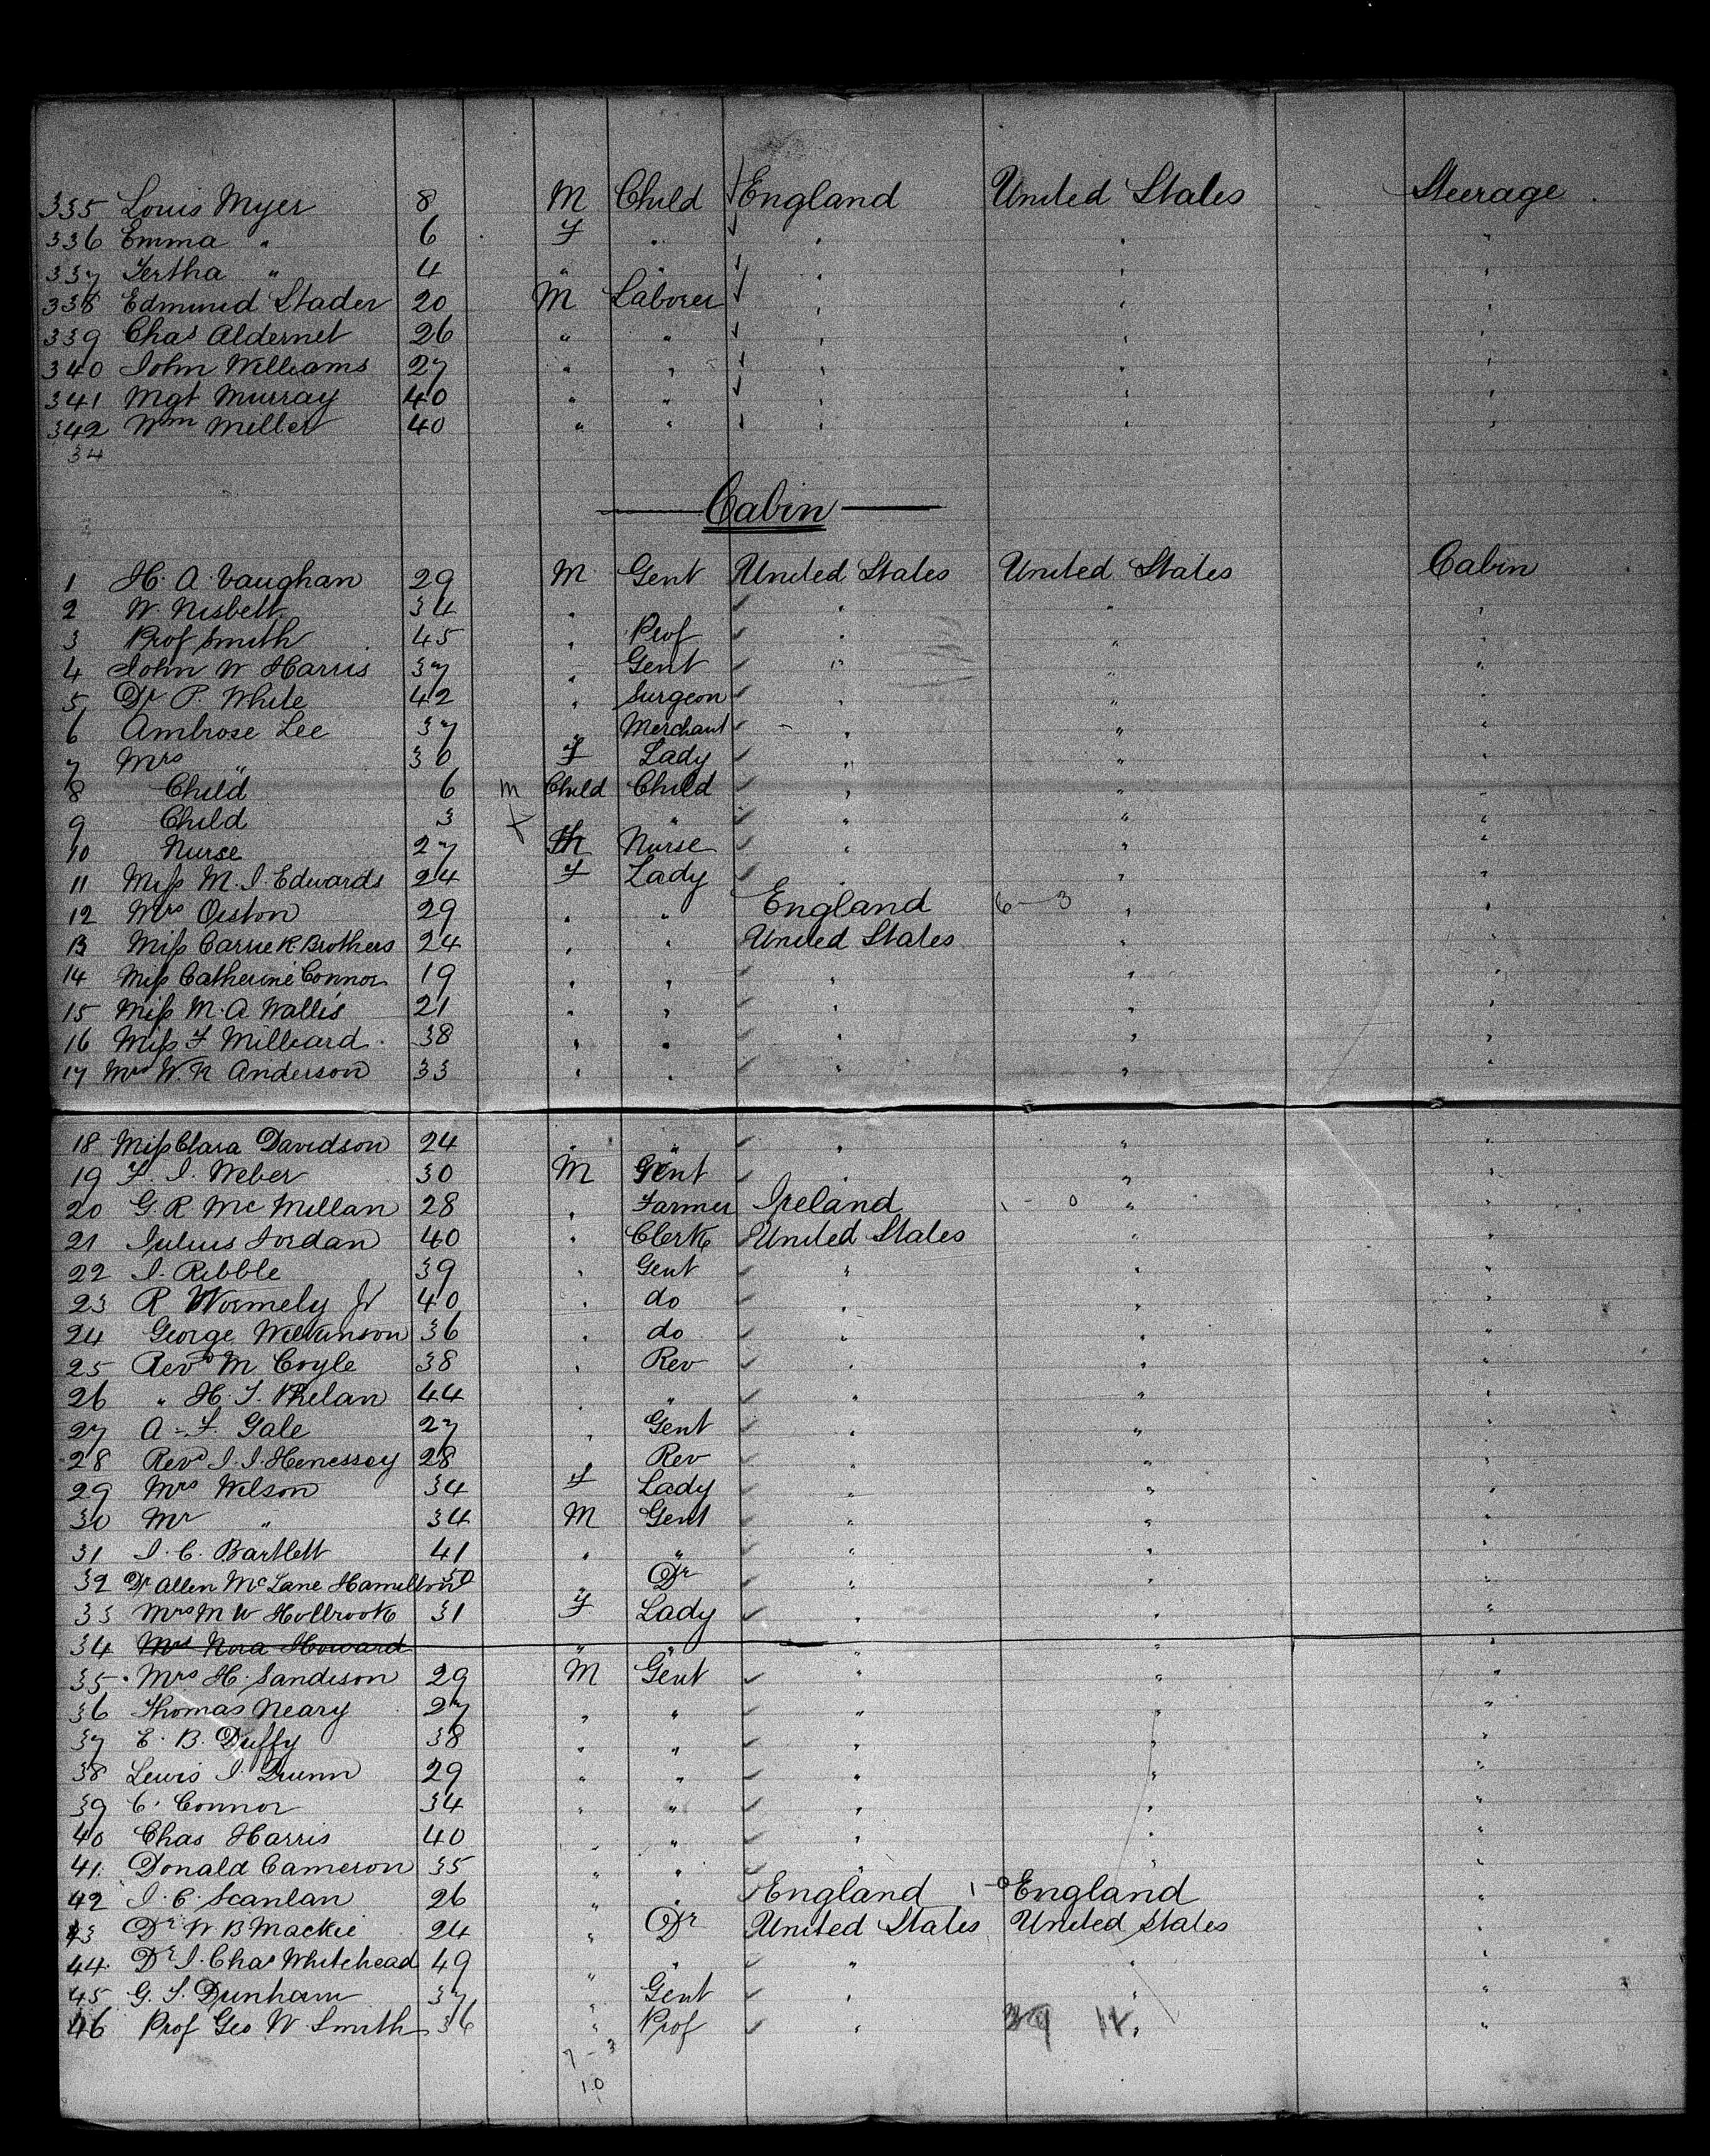 335 Louis Myer 8 M Child ✓ England United States Steerage
336 Emma " 6 F " ✓ " " "
337 Tertha " 4 " " ✓ " " "
338 Edmund Stader 20 M Laborer ✓ " " "
339 Chas Aldernet 26 " " ✓ " " "
340 John Williams 27 " " ✓ " " "
341 Mgt Murray 40 " " ✓ " " "
342 Wm Miller 40 " " ✓ " " "
34
Cabin
1 H. A. Vaughan 29 M Gent United States United States Cabin
2 W. Nisbett 34 " ✓ " " "
3 Prof Smith 45 " Prof ✓ " " "
4 John W Harris 37 " Gent ✓ " " "
5 Dr P. White 42 " Surgeon ✓ " " "
6 Ambrose Lee 37 " Merchant ✓ " " "
7 Mrs " 30 F Lady ✓ " " "
8 Child 6 m Child Child ✓ " " "
9 Child 3 " ✓ " " "
10 Nurse 27 Nurse ✓ " " "
11 Miss M. J. Edwards 24 F Lady ✓ " " "
12 Mrs Oeston 29 " " England 6 - 3 " "
13 Miss Carrie R Brothers 24 " " United States " "
14 Miss Catherine Connor 19 " " ✓ " " "
15 Miss M. A Wallis 21 " " ✓ " " "
16 Miss F Milliard 38 " " ✓ " " "
17 Mrs W. N Anderson 33 " " ✓ " " "
18 Miss Clara Davidson 24 " " ✓ " " "
19 F. J. Weber 30 M Gent ✓ " " "
20 G. R Mc Millan 28 " Farmer Ireland 1 - 0 " "
21 Julius Jordan 40 " Clerk United States " "
22 J. Ribble 39 " Gent ✓ " " "
23 R Wormely Jr 40 " do ✓ " " "
24 George Wilkinson 36 " do ✓ " " "
25 Revd M Coyle 38 " Rev ✓ " " "
26 " H. S. Phelan 44 " " ✓ " " "
27 A - F. Gale 27 " Gent ✓ " " "
28 Revd J. J. Henessey 28 " Rev ✓ " " "
29 Mrs Wilson 34 F Lady ✓ " " "
30 Mr " 34 M Gent ✓ " " "
31 J. C. Bartlett 41 " " ✓ " " "
32 Dr Allen McLane Hamilton 30 " Dr ✓ " " "
33 Mrs M W Holbrook 31 F Lady ✓ " " "
34 Mrs Nora Howard " " " " "
35 Mrs H. Sandison 29 M Gent ✓ " " "
36 Thomas Neary 27 " " ✓ " " "
37 E. B. Duffy 38 " " ✓ " " "
38 Lewis J. Drunn 29 " " ✓ " " "
39 C. Connor 34 " " ✓ " " "
40 Chas Harris 40 " " ✓ " " "
41. Donald Cameron 35 " " ✓ " " "
42 J. C. Scanlan 26 " " ✓ England 1 - 0 England "
43 Dr W B Mackie 24 " Dr United States United States "
44. Dr J. Chas Whitehead 49 " " ✓ " " "
45 G. S. Dunham 37 " Gent ✓ " " "
46 Prof Geo W Smith 36 " Prof ✓ " " "
7 - 3
10